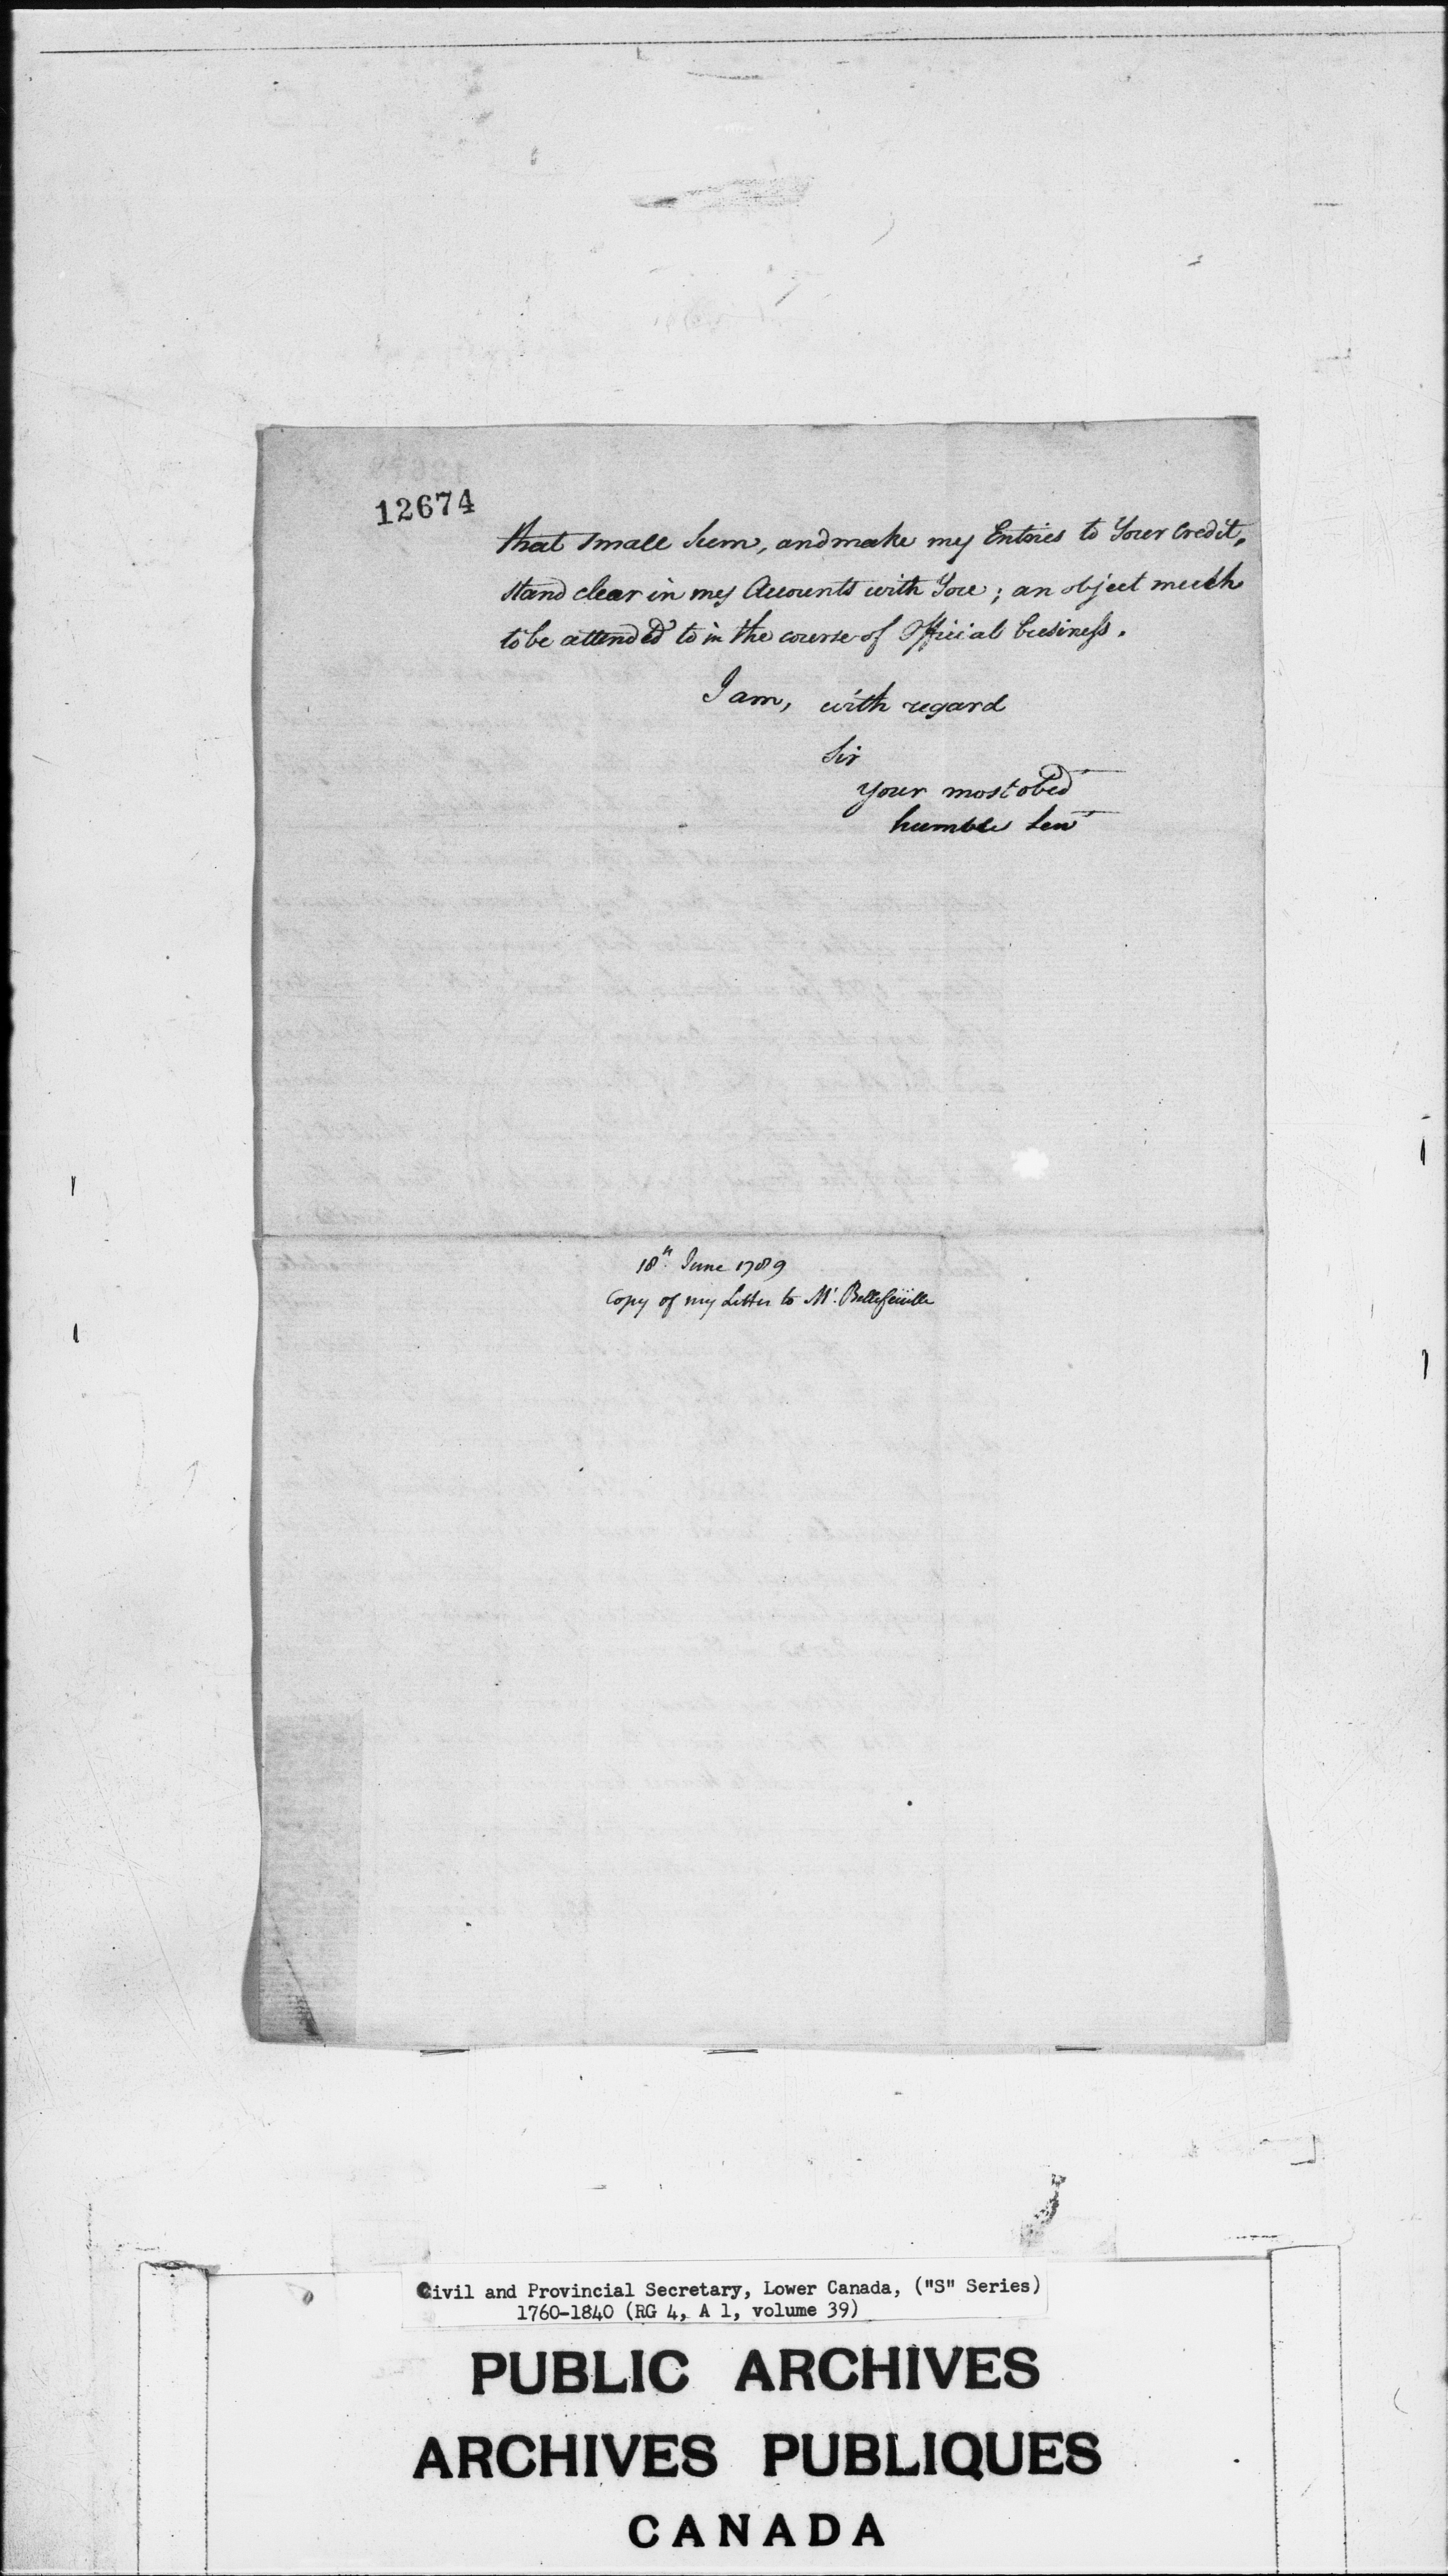 12674
that small Sum, and make my Entries to Your Credit,
stand clear in my Accounts with You; an object much
to be attended to in the course of Official business.
I am, with regard
Sir
Your most obedt
humble Servt
18th June 1789
Copy of my Letter to Mr. Bellefeuille
Civil and Provincial Secretary, Lower Canada, ("S" Series)
1760-1840 (RG 4, A 1, volume 39)
PUBLIC ARCHIVES
ARCHIVES PUBLIQUES
CANADA